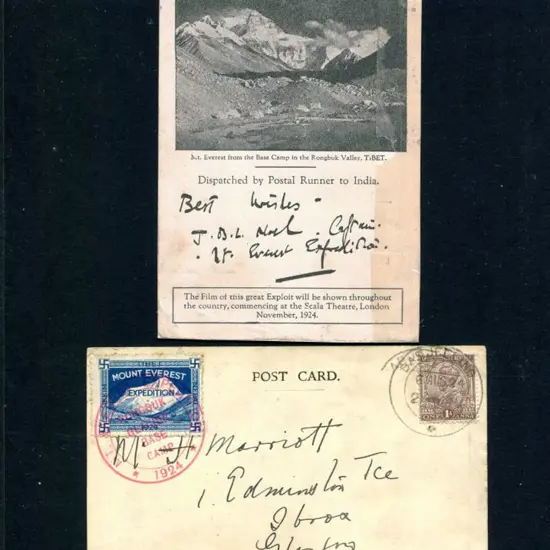 Mt. Everest from the Base Camp in the Rongbuk Valley, TIBET.
Dispatched by Postal Runner to India.
Best Wishes -
J.B.L. Noel. Captain.
Mt. Everest Expedition.
The Film of this great Exploit will be shown throughout
the country, commencing at the Scala Theatre, London
November, 1924.
MOUNT EVEREST
EXPEDITION
RONGBUK
BASE
CAMP
1924
POST CARD.
1A
H Marriott
1, Edminston Tce
Ibrox